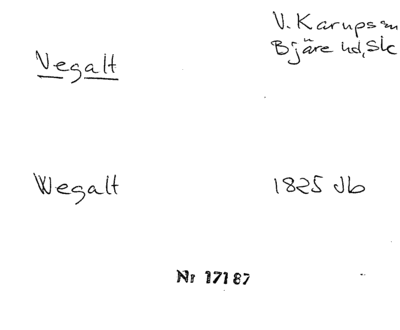 V. Karups sn
Vegalt Bjäre hd, Sk
Wegalt 1825 Jb
Nr 17187